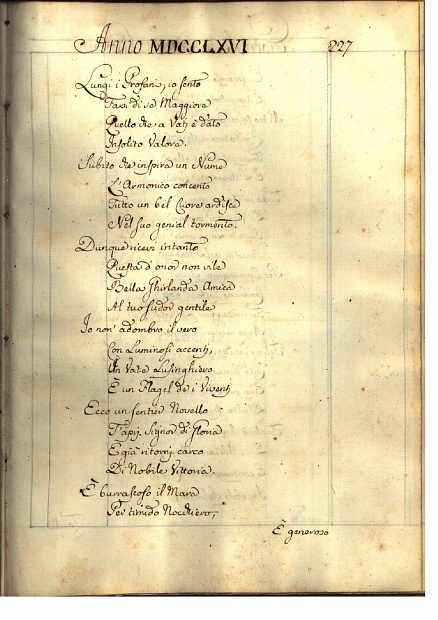 Anno MDCCLXVI 227
Lungi i Profani, io sento
Farsi di se Maggiore
Quello che a Vati è dato
Insolito Valore.
Subito che inspira un Nume
L'Armonico concento
Tutto un bel Cuore ardisce
Nel suo genial tormento.
Dunque ricevi intanto
Questa d'onor non vile
Bella Ghirlanda Amica
Al tuo sudor gentile
Io non adombro il vero
Con Luminosi accenti,
Un Vate Lusinghiero
È un Flagel de i Viventi
Ecco un sentier Novello
Signor di Gloria
E già ritorni carco
Di Nobile Vittoria.
È burrascoso il Mare
Per timido Nocchiero;
È generoso